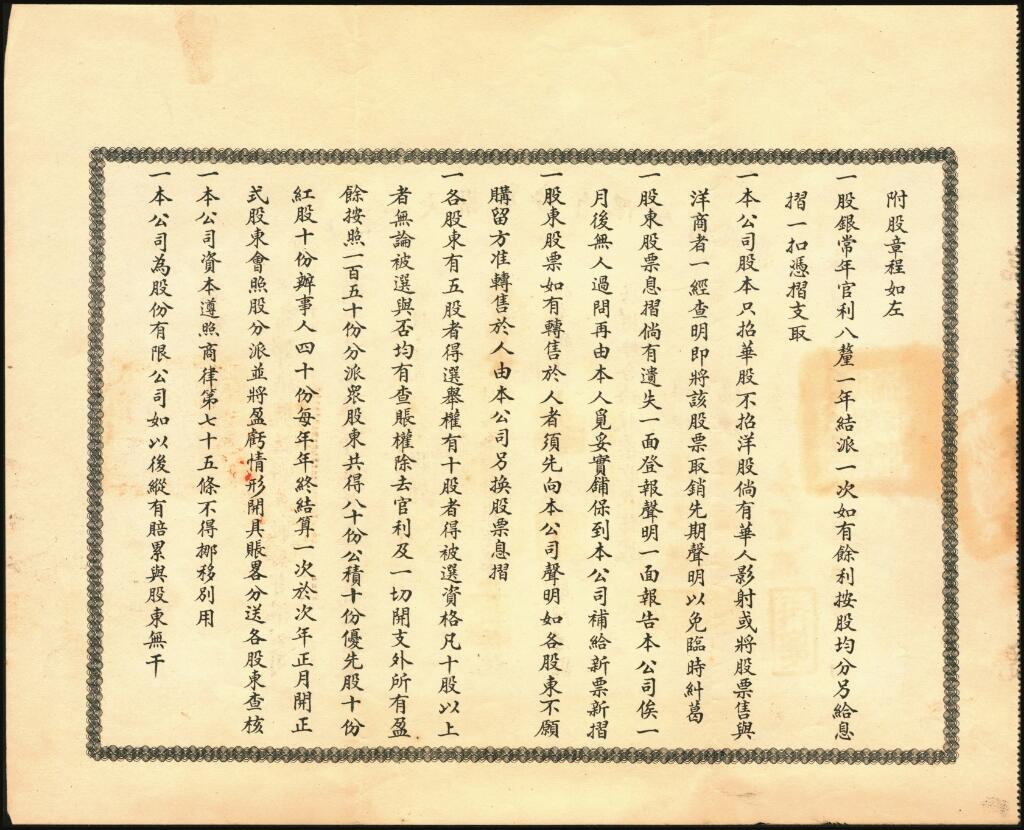 附股章程如左
一股銀常年官利八釐一年結派一次如有餘利按股均分另給息
摺一扣憑摺支取
一本公司股本只招華股不招洋股倘有華人影射或將股票售與
洋商者一經查明即將該股票取銷先期聲明以免臨時糾葛
一股東股票息摺倘有遺失一面登報聲明一面報告本公司俟一
月後無人過問再由本人覓妥實鋪保到本公司補給新票新摺
一股東股票如有轉售於人者須先向本公司聲明如各股東不願
購留方准轉售於人由本公司另換股票息摺
一各股東有五股者得選舉權有十股者得被選資格凡十股以上
者無論被選與否均有查賬權除去官利及一切開支外所有盈
餘按照一百五十份分派眾股東共得八十份公積十份優先股十份
紅股十份辦事人四十份每年年終結算一次於次年正月開正
式股東會照股分派並將盈虧情形開具賬畧分送各股東查核
一本公司資本遵照商律第七十五條不得挪移別用
一本公司為股份有限公司如以後縱有賠累與股東無干